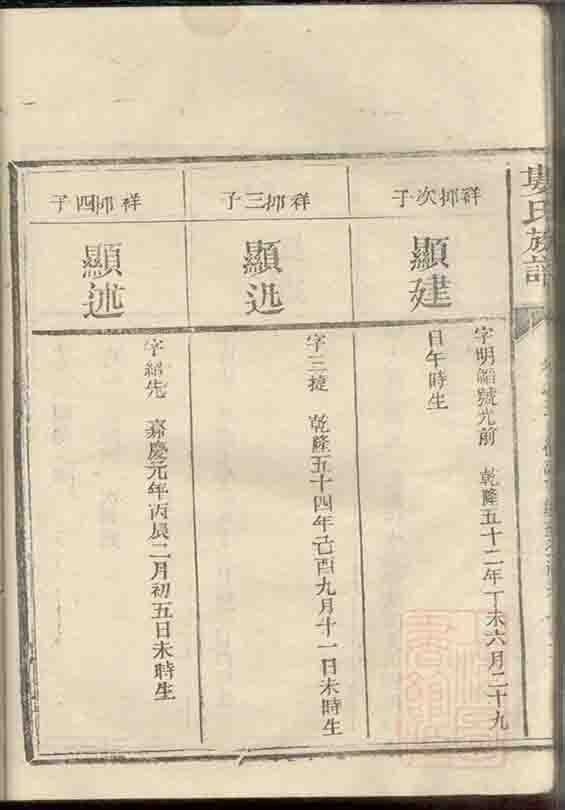 氏族譜
祥抑次子
顯建
字明 號光前 乾隆五十二年丁未六月二十九
日午時生
祥抑三子
顯迅
字三捷 乾隆五十四年己酉九月十一日未時生
祥抑四子
顯述
字紹先 嘉慶元年丙辰二月初五日未時生